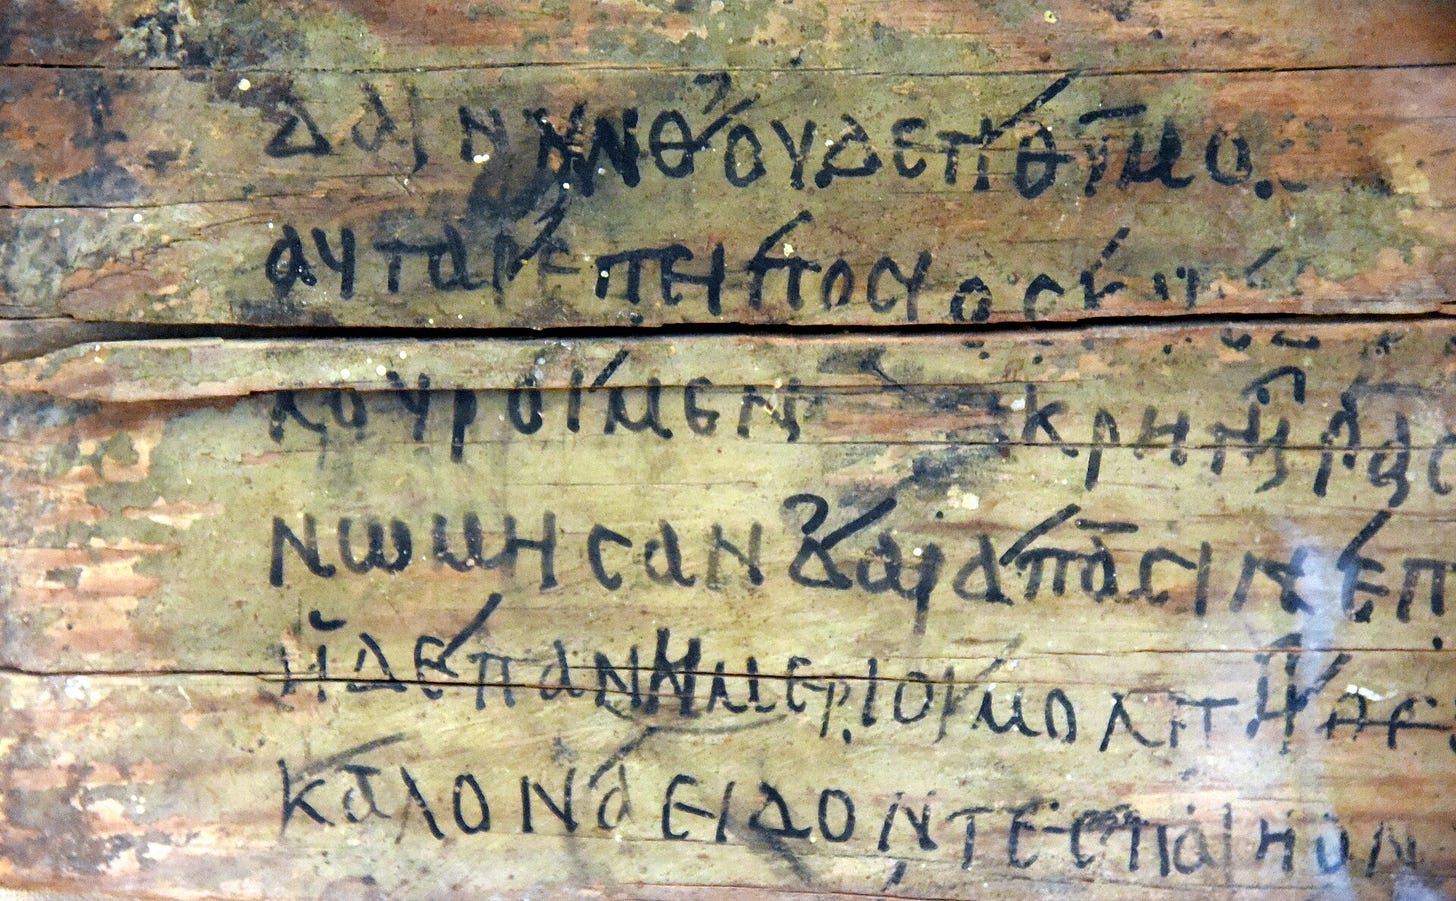 ουδετι θυμο
αυταρ επει ποσι
κουροι μεν κρητηρας
νωμησαν δ' αρ απασιν επ
ηδε πανημεριοι μολπη
καλον αειδοντες παιηον